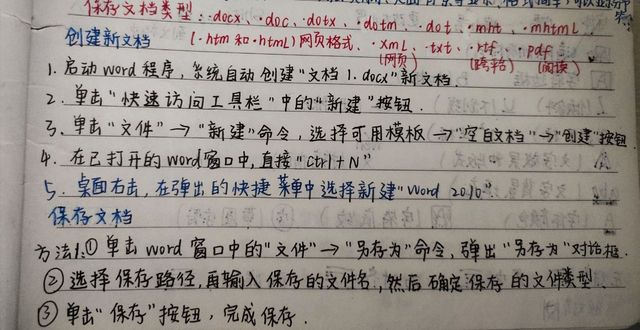 保存文档类型：.docx、.doc、.dotx、.dotm、.dot、.mht、.mhtml、
创建新文档 (.htm和.html)网页格式、.xml、.txt、.rtf、.pdf
(网页) (跨平台) (阅读)
1. 启动word程序，系统自动创建"文档1.docx"新文档.
2. 单击"快速访问工具栏"中的"新建"按钮.
3. 单击"文件"→"新建"命令，选择可用模板→"空白文档"→"创建"按钮
4. 在已打开的word窗口中，直接"Ctrl+N"
5. 桌面右击，在弹出的快捷菜单中选择新建"Word 2010"
保存文档
方法1.①单击word窗口中的"文件"→"另存为"命令，弹出"另存为"对话框.
②选择保存路径，再输入保存的文件名，然后确定保存的文件类型.
③单击"保存"按钮，完成保存.